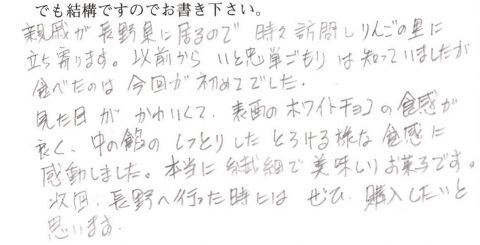 でも結構ですのでお書き下さい。
親戚が長野県に居るので 時々訪問しりんごの里に
立ち寄ります。以前から いと忠巣ごもり は知っていましたが
食べたのは 今回が初めてでした。
見た目が かわいくて、表面のホワイトチョコの食感が
良く、中の餡の しっとりした とろける様な食感に
感動しました。本当に 繊細で美味しいお菓子です。
次回、長野へ行った時には ぜひ、購入したいと
思います。